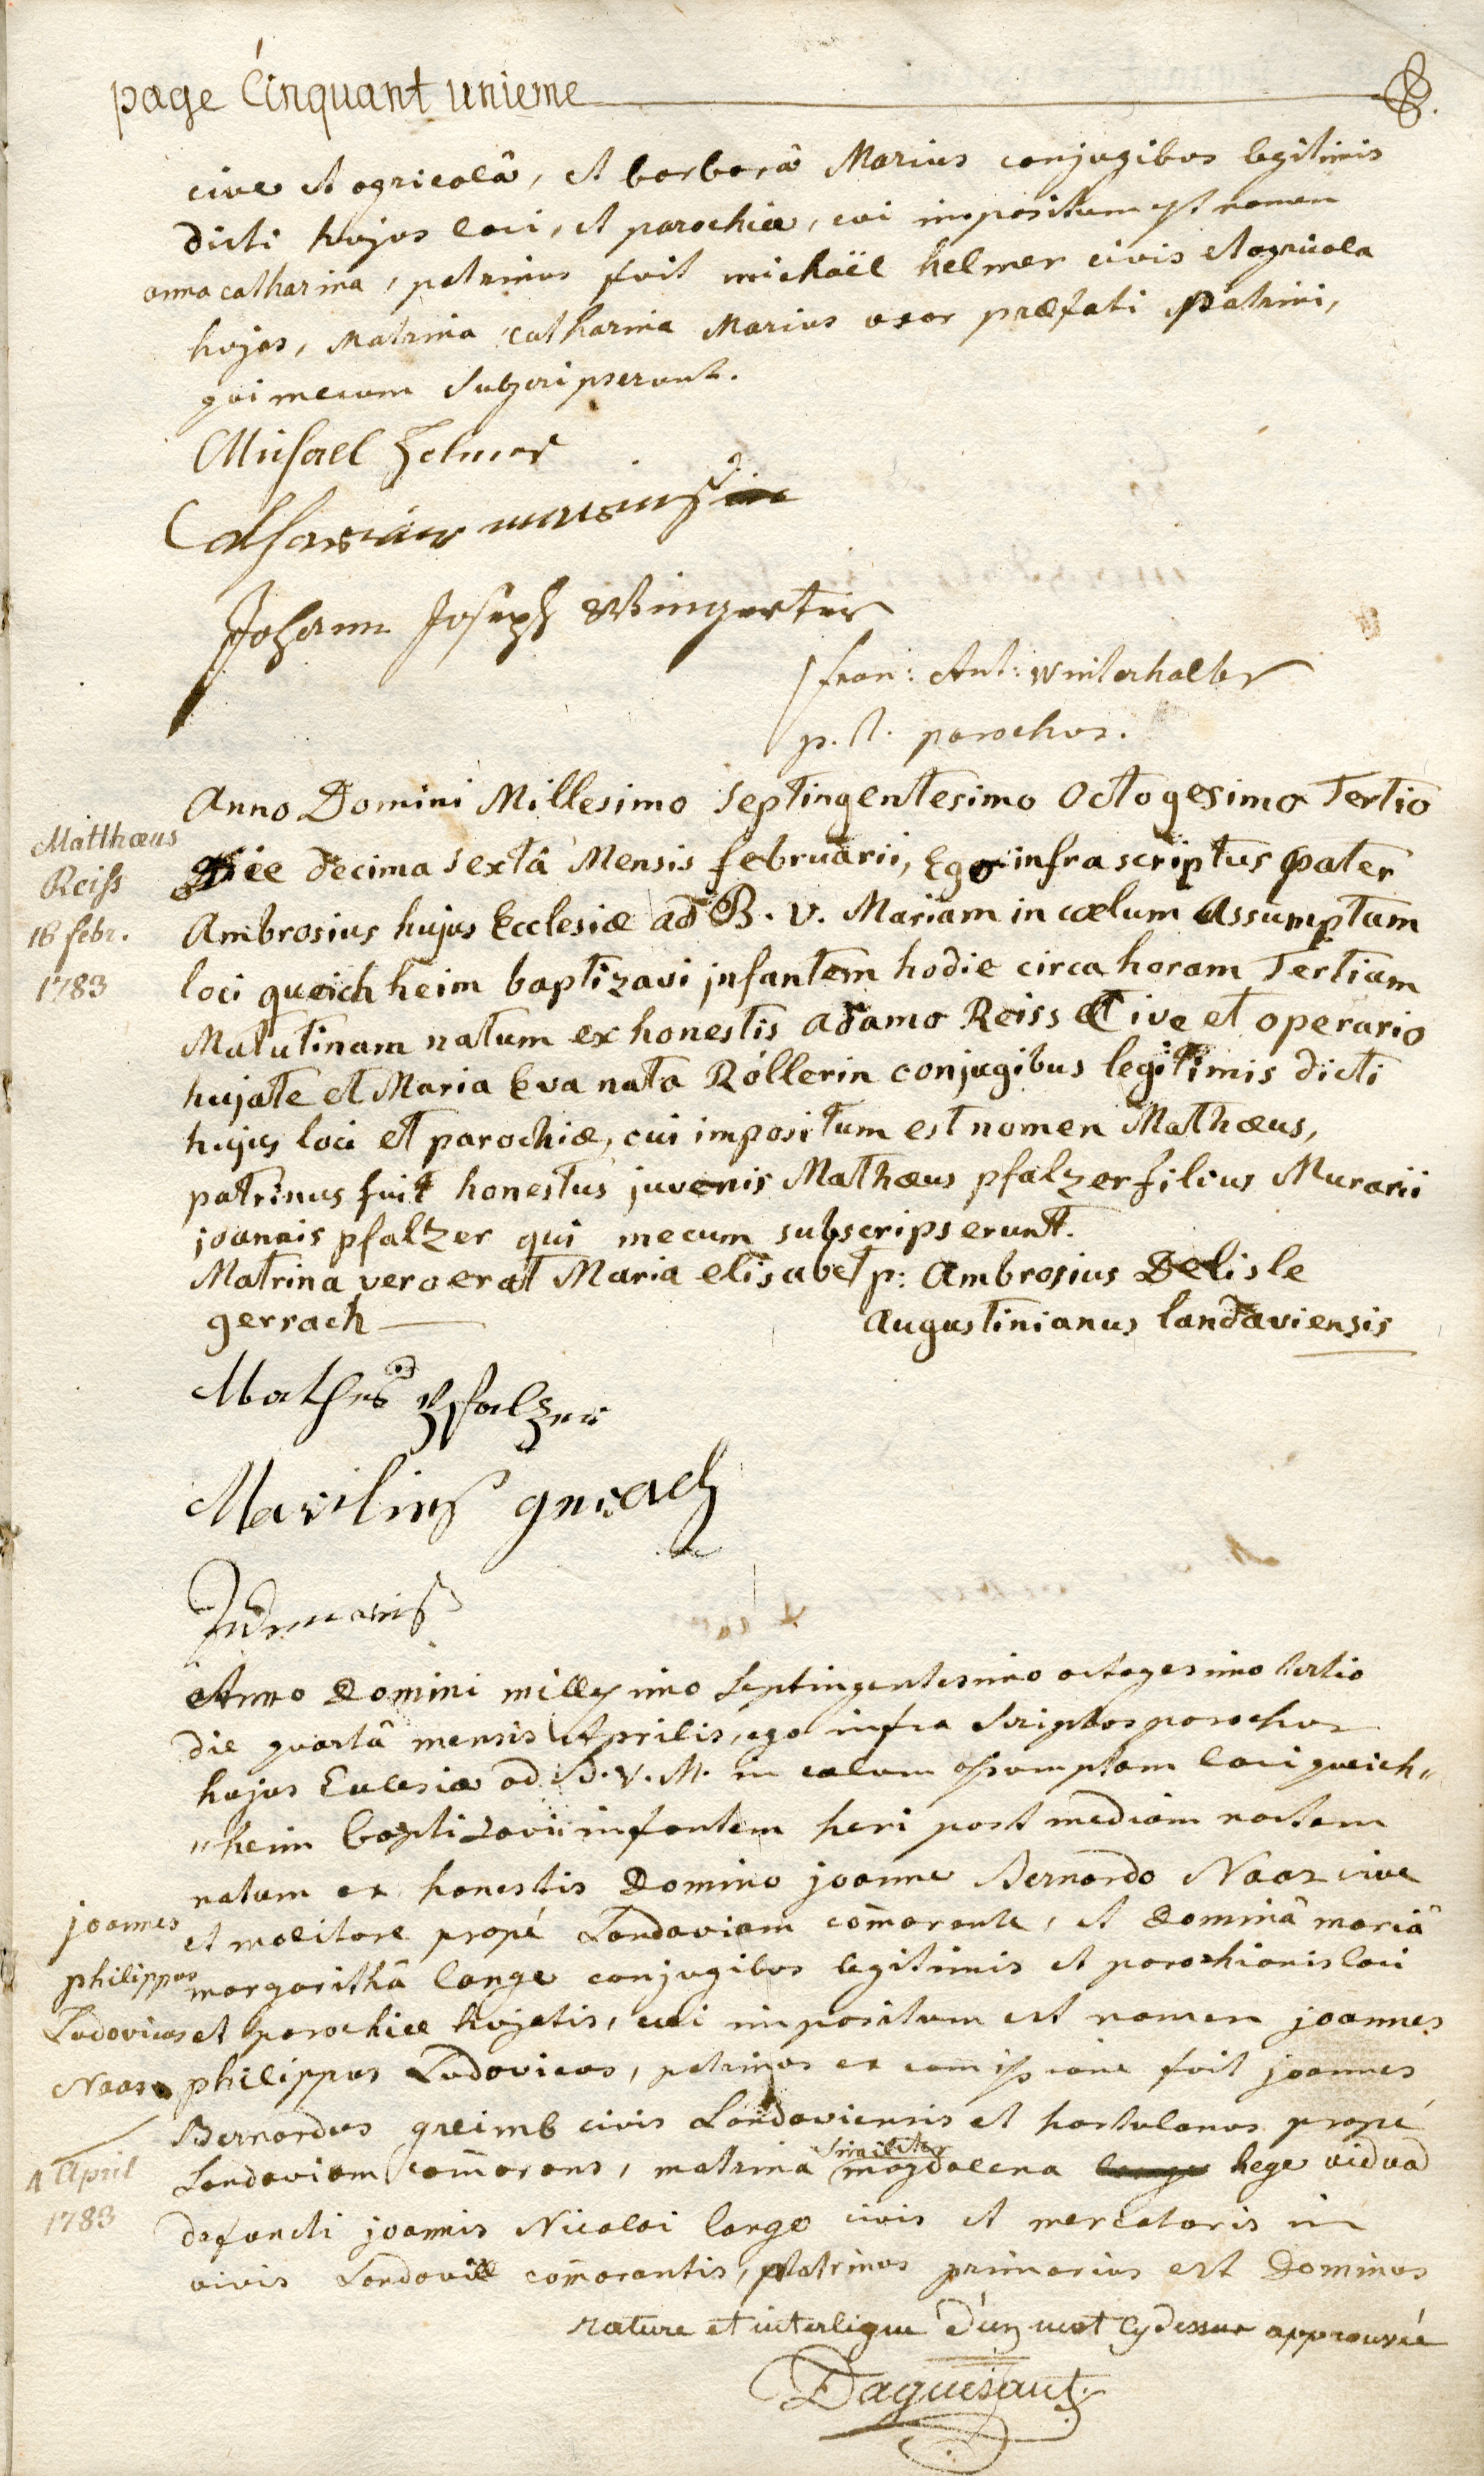 page Cinquant unieme
cive et agricolâ, et barbarâ Marius conjugibus legitimis
dicti hujus loci, et parochiæ, cui impositum est nomen
anna catharina, patrinus fuit michaël helmer civis et agricola
hujas, Matrina catharina Marius uxor præfati Patrini,
qui mecum subscripserunt.
Michael Helmer
Catharina mariusin
Johann Joseph Wingerter
fran: Ant: Winterhalter
p. t. parochus.
Anno Domini Millesimo septingentesimo octogesimo Tertio
Matthæus
Reiss
16 febr.
1783
Die decima sextâ Mensis februarii, Ego infra scriptus pater
Ambrosius hujus Ecclesiæ ad B. V. Mariam in cœlum Assumptam
loci queichheim baptizavi infantem hodie circa horam Tertiam
Matutinam natum ex honestis adamo Reiss Cive et operario
hujate et Maria Eva nata Röllerin conjugibus legitimis dicti
hujus loci et parochiæ, cui impositum est nomen Mathæus,
patrinus fuit honestus juvenis Mathæus pfalzer filius Murarii
joannis pfalzer qui mecum subscripserunt.
Matrina vero erat Maria elisabet p: Ambrosius Delisle
gerrach augustinianus landaviensis
Mathes Pfalzer
gerach
Anno Domini millesimo septingentesimo octogesimo tertio
die quartâ mensis Aprilis, ego infra scriptus parochus
hujus Ecclesiæ ad B. V. M. in cælum assumptam loci queich„
„heim baptizavi infantem heri post mediam noctem
natum ex honestis Domino joanne Bernardo Naas cive
joannes
philippus
Ludovicus
Naas
4 April
1783
et molitore propé Landaviam com̄orante, et Dominâ mariâ
margarithâ lange conjugibus legitimis et parochianis loci
et parochiæ hujatis, cui impositum est nomen joannes
philippus Ludovicus, patrinus ex com̄issione fuit joannes
Bernardus greimb civis Landaviensis et hortulanus propé
Landaviam com̄orans, matrina similiter magdalena lange hege vidua
defuncti joannis Nicolai lange civis et mercatoris in
vivis Landavii com̄orantis, Patrinus primarius est Dominus
rature et interligne d'un mot cy dessus approuvée
Daguesaut